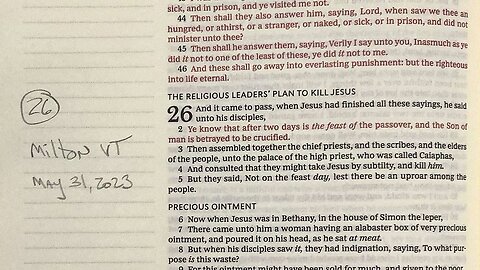 sick, and in prison, and ye visited me not.
44 Then shall they also answer him, saying, Lord, when saw we thee an
hungred, or athirst, or a stranger, or naked, or sick, or in prison, and did not
minister unto thee?
45 Then shall he answer them, saying, Verily I say unto you, Inasmuch as ye
did it not to one of the least of these, ye did it not to me.
46 And these shall go away into everlasting punishment: but the righteous
into life eternal.
THE RELIGIOUS LEADERS' PLAN TO KILL JESUS
26 And it came to pass, when Jesus had finished all these sayings, he said
unto his disciples,
2 Ye know that after two days is the feast of the passover, and the Son of
man is betrayed to be crucified.
3 Then assembled together the chief priests, and the scribes, and the elders
of the people, unto the palace of the high priest, who was called Caiaphas,
4 And consulted that they might take Jesus by subtilty, and kill him.
5 But they said, Not on the feast day, lest there be an uproar among the
people.
PRECIOUS OINTMENT
6 Now when Jesus was in Bethany, in the house of Simon the leper,
7 There came unto him a woman having an alabaster box of very precious
ointment, and poured it on his head, as he sat at meat.
8 But when his disciples saw it, they had indignation, saying, To what pur-
pose is this waste?
9 For this ointment might have been sold for much, and given to the poor
26
Milton VT
May 31, 2023